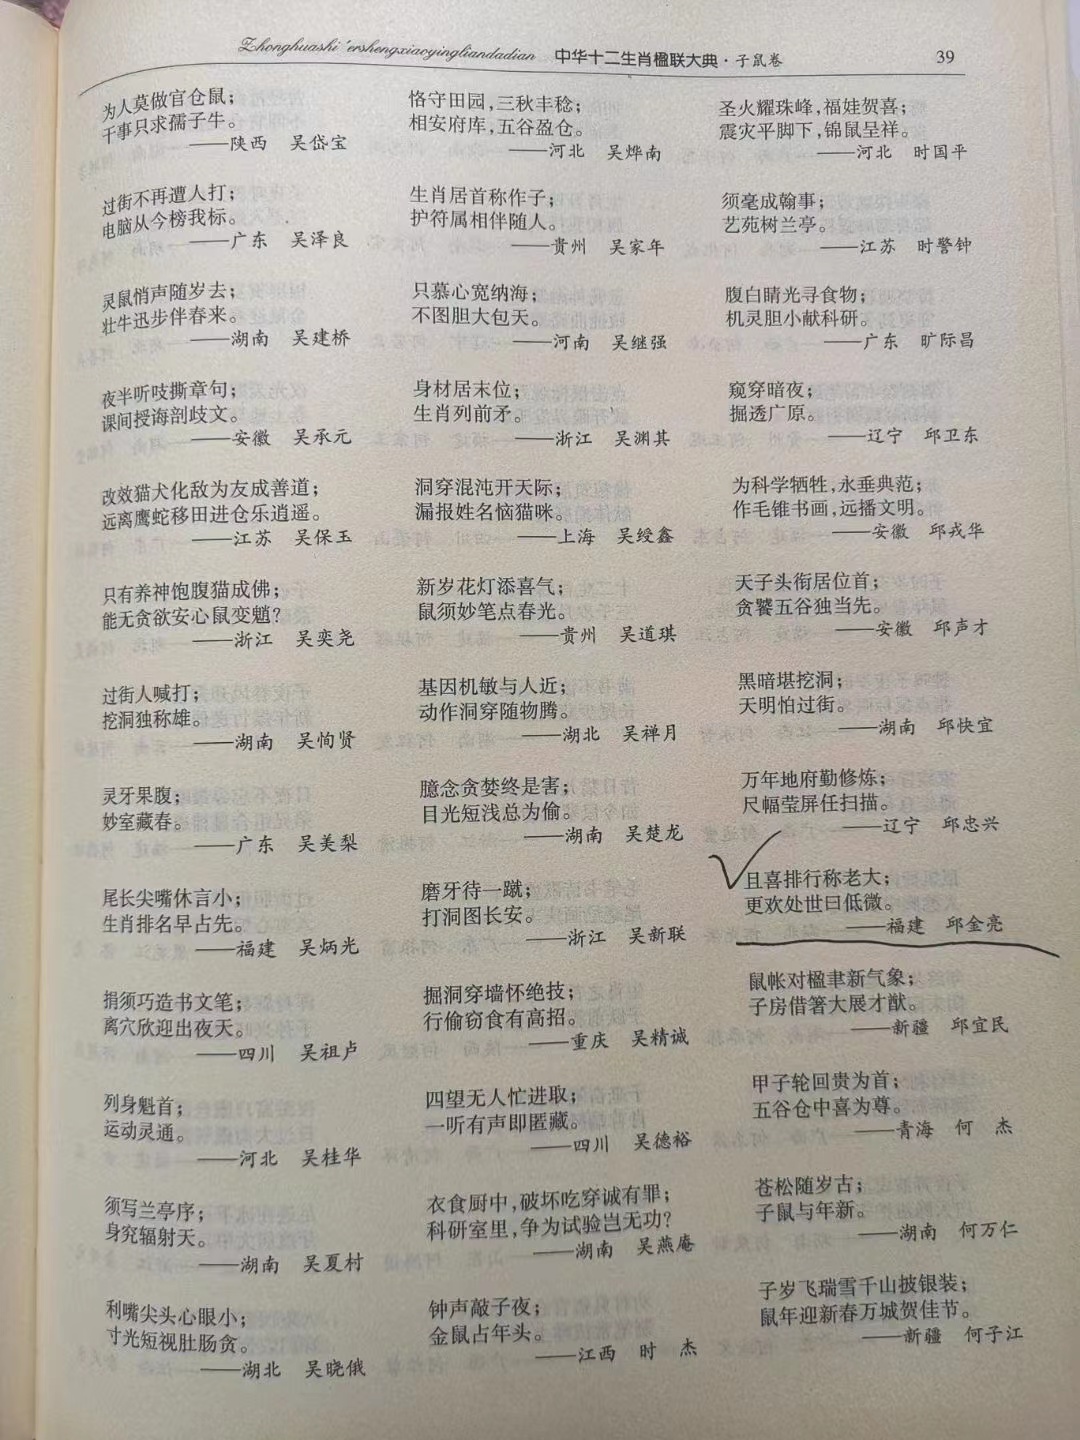 Zhonghuashi'ershengxiaoyingliandadian 中华十二生肖楹联大典·子鼠卷 39
为人莫做官仓鼠；
干事只求孺子牛。
——陕西 吴岱宝
过街不再遭人打；
电脑从今榜我标。
——广东 吴泽良
灵鼠悄声随岁去；
壮牛迅步伴春来。
——湖南 吴建桥
夜半听吱撕章句；
课间授海剖歧文。
——安徽 吴承元
改效猫犬化敌为友成善道；
远离鹰蛇移田进仓乐逍遥。
——江苏 吴保玉
只有养神饱腹猫成佛；
能无贪欲安心鼠变魈？
——浙江 吴奕尧
过街人喊打；
挖洞独称雄。
——湖南 吴恂贤
灵牙果腹；
妙室藏春。
——广东 吴美梨
尾长尖嘴休言小；
生肖排名早占先。
——福建 吴炳光
捐须巧造书文笔；
离穴欣迎出夜天。
——四川 吴祖卢
列身魁首；
运动灵通。
——河北 吴桂华
须写兰亭序；
身究辐射天。
——湖南 吴夏村
利嘴尖头心眼小；
寸光短视肚肠贪。
——湖北 吴晓俄
恪守田园，三秋丰稔；
相安府库，五谷盈仓。
——河北 吴烨南
生肖居首称作子；
护符属相伴随人。
——贵州 吴家年
只慕心宽纳海；
不图胆大包天。
——河南 吴继强
身材居末位；
生肖列前矛。
——浙江 吴渊其
洞穿混沌开天际；
漏报姓名恼猫咪。
——上海 吴绶鑫
新岁花灯添喜气；
鼠须妙笔点春光。
——贵州 吴道琪
基因机敏与人近；
动作洞穿随物腾。
——湖北 吴禅月
臆念贪婪终是害；
目光短浅总为偷。
——湖南 吴楚龙
磨牙待一蹴；
打洞图长安。
——浙江 吴新联
掘洞穿墙怀绝技；
行偷窃食有高招。
——重庆 吴精诚
四望无人忙进取；
一听有声即匿藏。
——四川 吴德裕
衣食厨中，破坏吃穿诚有罪；
科研室里，争为试验岂无功？
——湖南 吴燕庵
钟声敲子夜；
金鼠占年头。
——江西 时 杰
圣火耀珠峰，福娃贺喜；
震灾平脚下，锦鼠呈祥。
——河北 时国平
须毫成翰事；
艺苑树兰亭。
——江苏 时警钟
腹白睛光寻食物；
机灵胆小献科研。
——广东 旷际昌
窥穿暗夜；
掘透广原。
——辽宁 邱卫东
为科学牺牲，永垂典范；
作毛锥书画，远播文明。
——安徽 邱戎华
天子头衔居位首；
贪饕五谷独当先。
——安徽 邱声才
黑暗堪挖洞；
天明怕过街。
——湖南 邱快宜
万年地府勤修炼；
尺幅莹屏任扫描。
——辽宁 邱忠兴
且喜排行称老大；
更欢处世曰低微。
——福建 邱金亮
鼠帐对楹聿新气象；
子房借箸大展才猷。
——新疆 邱宜民
甲子轮回贵为首；
五谷仓中喜为尊。
——青海 何 杰
苍松随岁古；
子鼠与年新。
——湖南 何万仁
子岁飞瑞雪千山披银装；
鼠年迎新春万城贺佳节。
——新疆 何子江